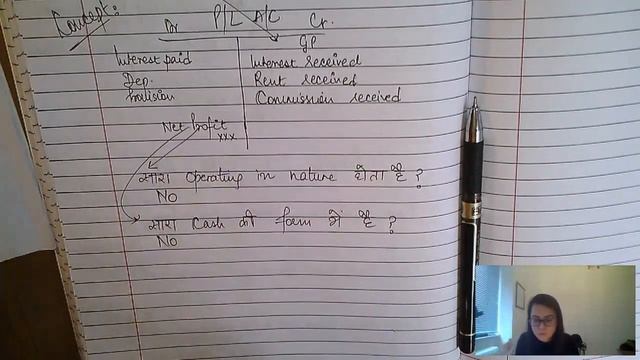 Concept:
Dr P/L A/C Cr.
GP
Interest paid Interest received
Dep. Rent received
Provision Commission received
Net Profit
xxx
सारा operating in nature होता है ?
No
सारा Cash की form में है ?
No